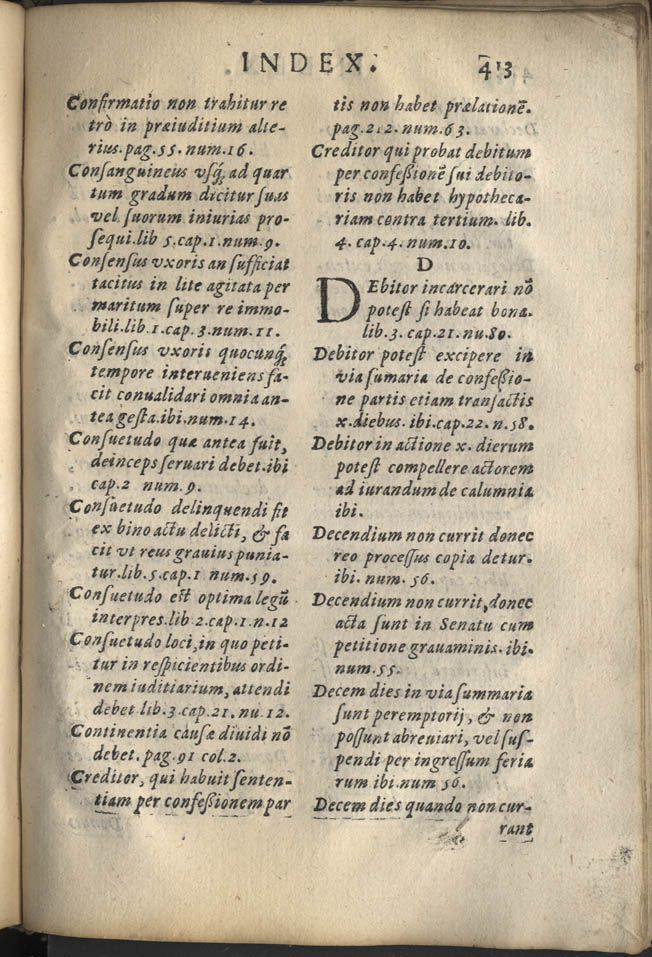 INDEX.
413
Confirmatio non trahitur re
trò in præiuditium alte-
rius.pag.55.num.16.
Consanguineus vsq́; ad quar
tum gradum dicitur suas
vel suorum iniurias pro-
sequi.lib 5.cap.1.num.9.
Consensus vxoris an sufficiat
tacitus in lite agitata per
maritum super re immo-
bili.lib.1.cap.3.num.11.
Consensus vxoris quocunq́;
tempore interueniens fa-
cit conualidari omnia an-
tea gesta.ibi.num.14.
Consuetudo quæ antea fuit,
deinceps seruari debet.ibi
cap.2 num.9.
Consuetudo delinquendi fit
ex bino actu delicti, & fa
cit vt reus grauius punia-
tur.lib.5.cap.1 num.59.
Consuetudo est optima legũ
interpres.lib 2.cap.1.n.12
Consuetudo loci, in quo peti-
tur in respicientibus ordi-
nem iuditiarium, attendi
debet.lib.3.cap.21.nu.12.
Continentia causæ diuidi nõ
debet.pag.91 col.2.
Creditor, qui habuit senten-
tiam per confessionem par
tis non habet prælationẽ.
pag.212.num.63.
Creditor qui probat debitum
per confessionẽ sui debito-
ris non habet hypotheca-
riam contra tertium. lib.
4. cap.4. num.10.
D
DEbitor incarcerari nõ
potest si habeat bona.
lib.3. cap.21.nu.80.
Debitor potest excipere in
via sumaria de confessio-
ne partis etiam transactis
x.diebus.ibi.cap.22.n.58.
Debitor in actione x. dierum
potest compellere actorem
ad iurandum de calumnia
ibi.
Decendium non currit donec
reo processus copia detur.
ibi. num. 56.
Decendium non currit, donec
acta sunt in Senatu cum
petitione grauaminis. ibi.
num.55.
Decem dies in via summaria
sunt peremptorij, & non
possunt abreuiari, vel sus-
pendi per ingressum feria
rum ibi.num 56.
Decem dies quando non cur-
rant